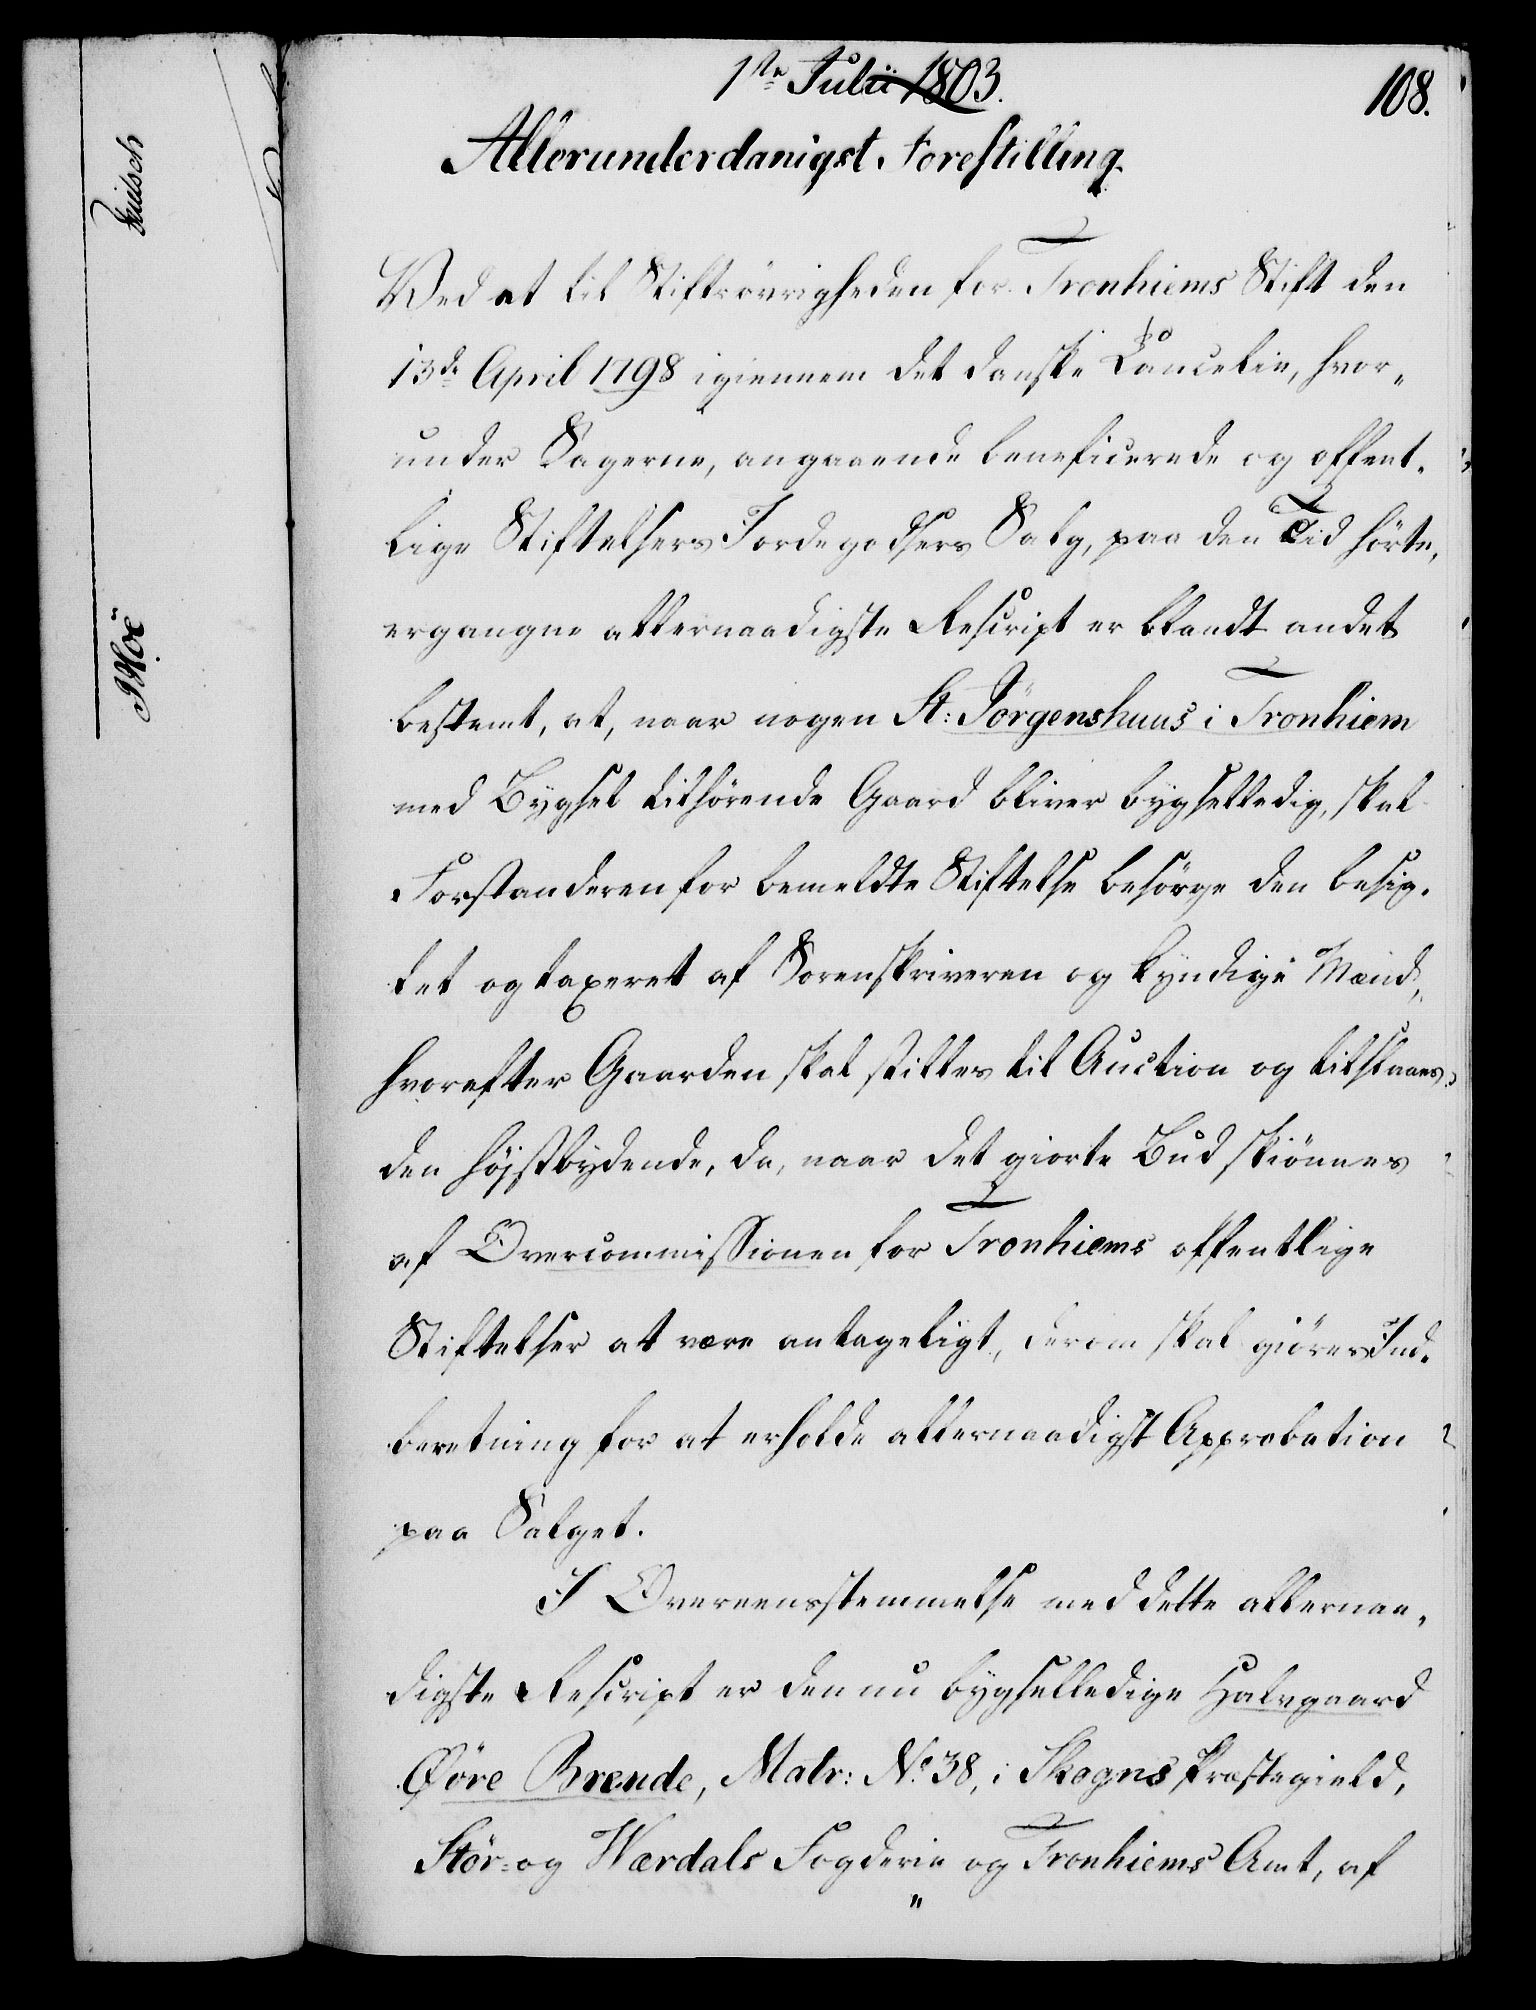 1ste Julii 1803.
108.
Allerunderdanigst Forestilling.
Ved at til Stiftsøvrigheden for Tronhiems Stift den
13de April 1798 igiennem det danske Cancelie, hvor-
under Sagerne, angaaende beneficerede og offent-
lige Stiftelsers Jordegodsers Salg, paa den Tid hörte,
ergangne allernaadigste Rescript er blandt andet
bestemt, at, naar nogen St: Jörgenshuus i Tronhiem
med Bygsel tilhörende Gaard bliver bygselledig, skal
Forstanderen for bemeldte Stiftelse besörge den besig-
tet og taxeret af Sorenskriveren og kyndige Mænd,
hvorefter Gaarden skal stilles til Auction og tilslaaes
den höjstbydende, da, naar det giorte Bud skiönnes
af Overcommissionen for Tronhiems offentlige
Stiftelser at være antageligt, derom skal giöres Ind-
beretning for at erholde allernaadigst Approbation
paa Salget.
I Overeensstemmelse med dette allernaa-
digste Rescript er den nu bygselledige Halvgaard
Öore Brende, Matr: No 38, i Skogns Præstegield,
Stör- og Wærdals Fogderie og Tronhiems Amt, af
"